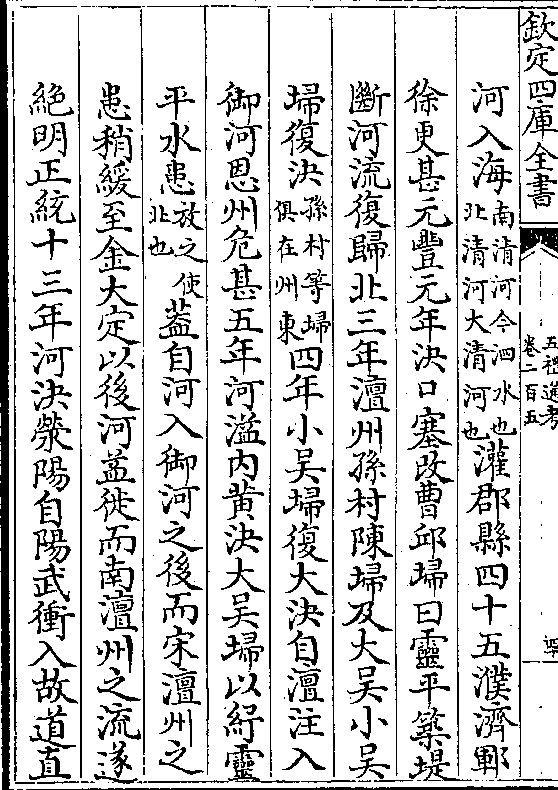 欽定四庫全書
五禮通考
卷二百五
河入海南清河今泗水也北清河大清河也灌郡縣四十五濮濟鄆
徐更甚元豐元年決口塞改曹邱埽曰靈平築堤
斷河流復歸北三年澶州孫村陳埽及大吳小吳
埽復決孫村等埽俱在州東四年小吳埽復大決自澶注入
御河恩州危甚五年河溢内黄決大吳埽以紓靈
平水患放之使北也葢自河入御河之後而宋澶州之
患稍緩至金大定以後河益徙而南澶州之流遂
絶明正統十三年河決滎陽自陽武衝入故道直